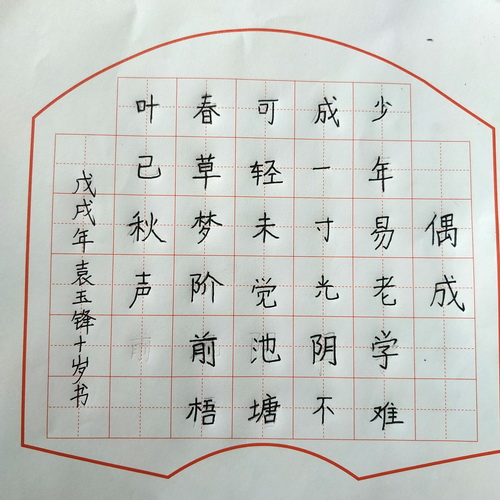 偶成
少年易老学难
成一寸光阴不
可轻未觉池塘
春草梦阶前梧
叶已秋声
戊戌年袁玉锋十岁书